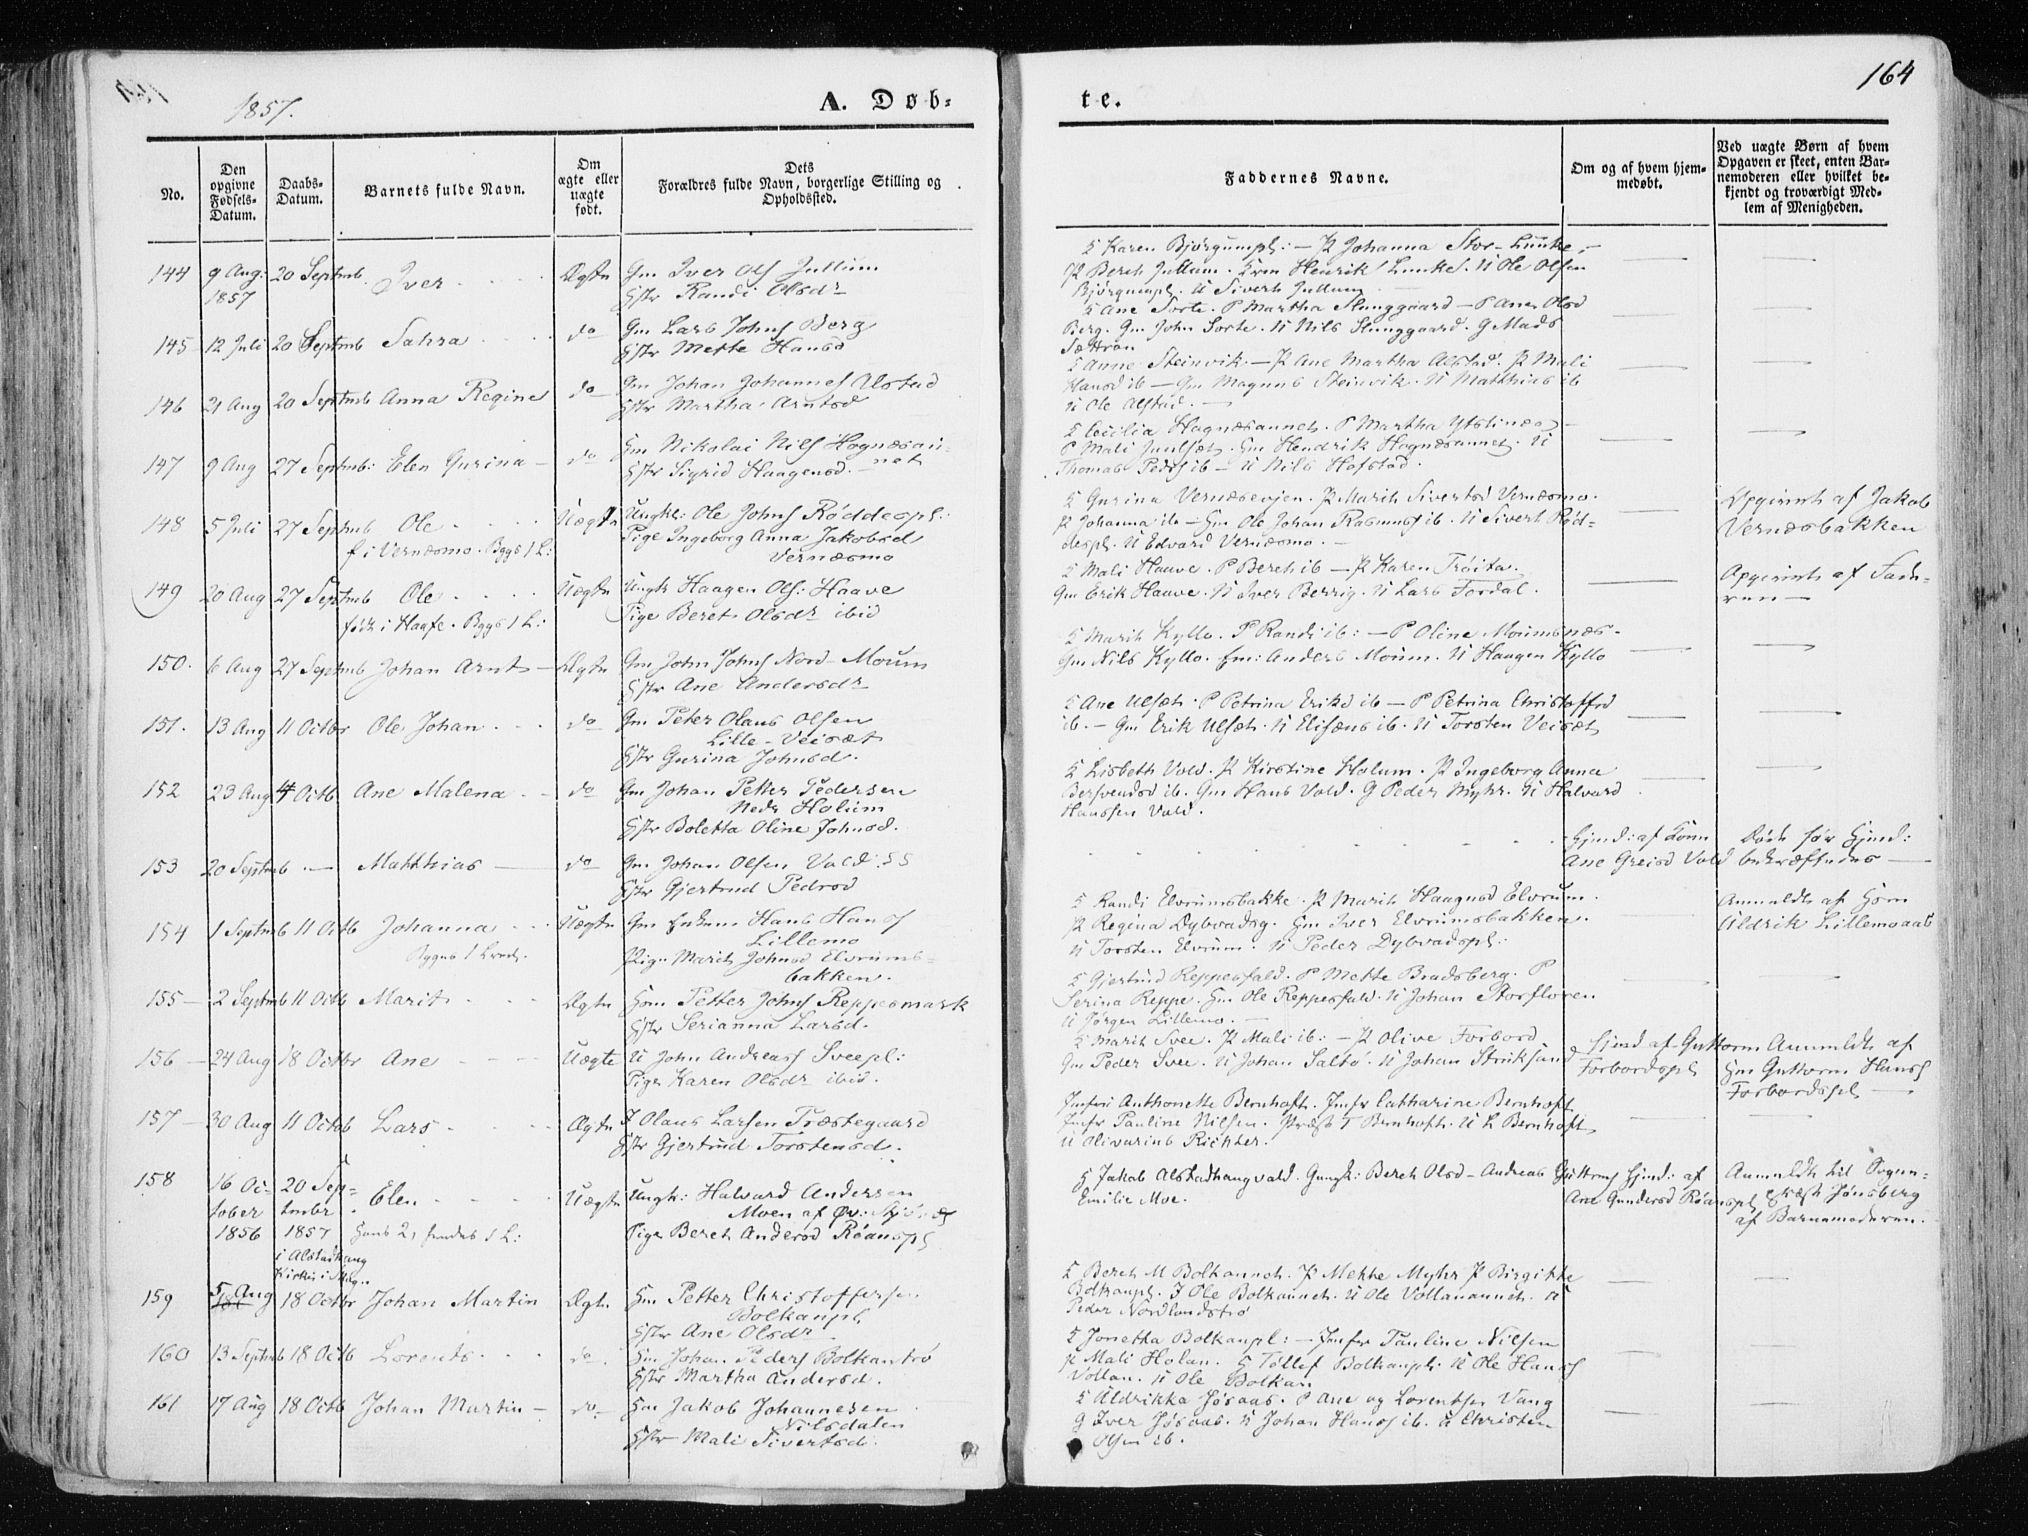 1857.
A. Døb-
te.
164
No.
Den opgivne Fødsels-Datum.
Daabs-Datum.
Barnets fulde Navn.
Om ægte eller uægte født.
Dets Forældres fulde Navn, borgerlige Stilling og Opholdssted.
Faddernes Navne.
Om og af hvem hjemmedøbt.
Ved uægte Børn af hvem Opgaven er skeet, enten Barnemoderen eller hvilket bekjendt og troværdigt Medlem af Menigheden.
144 9 Aug: 1857 20 Septmb. Iver Ægte Gm Iver Ols Jullum
Hstr Randi Olsdr
Karen Bjørgumpl: — P Johanna Stor-Lunke
P Bereth Jullum. Henrik Lunke. U Ole Olsen
Bjørgumpl. U Sivert Jullum
145 12 Juli 20 Septmb Sahra do Gm Lars Johns Berg
Hstr Mette Hansd
Ane Sorte. P Martha Slunggaard — P Ane Olsd
Berg. Gm John Sorte. U Nils Slunggaard. G Mads
Sætran
146 21 Aug 20 Septmb Anna Regine do Gm Johan Johannes Alstad
Hstr Martha Arntsd
Anne Steinvik — P Ane Martha Alstad. P Mali
Hansd ib — Gm Magnus Steinvik. U Matthias ib
U Ole Alstad.
147 9 Aug 27 Septmb: Elen Gurina do Gm Nikolai Nils Hognæsaunet
Hstr Sigrid Haagensd.
Cecilia Hognæsaunet. P Martha Ydstines
P Mali Gm Hendrik Hognæsaunet. U
Thomas Peders ib — U Nils Hofstad.
148 5 Juli 27 Septmb Ole Uægte Ungkl: Ole Johns Røddespl.
f. i Vernæsmo. Bygs 1 L: Pige Ingeborg Anna Jakobsd
Vernæsmo
Gurina Vernæsvejen. P Marit Sivertsd Vernæsmo.
P Johanna ib — Gm Ole Johan Rasmuss ib. U Sivert Rød-
despl. U Edvard Vernæsmo.
Opgivet af Jakob
Vernæsbakken
149 20 Aug 27 Septmb Ole Uægte Ungk Haagen Ols: Haave
født i Haafe. Bygs 1 L: Pige Beret Olsdr ibid
Mali Haave. P Bereth ib — P Karen Trøita.
Gm Erik Haave. U Iver Berrig. U Lars Fordal.
Opgivet af Fade-
ren
150. 6 Aug 27 Septmb Johan Arnt Ægte Gm John Johns Nord-Moum
Hstr Ane Andersdr
Marit Kyllo. P Randi ib: — P Oline Moumsnæs.
Gm Nils Kyllo. Em: Anders Moum. U Haagen Kyllo
151. 13 Aug 11 Octbr Ole Johan do Gm Peter Olaus Olsen
Lille-Veisæt
Hstr Gurina Johnsd.
Ane Ulsæt. P Petrina Eriksd ib — P Petrina Christoffsd
ib. — Gm Erik Ulsæt. U Elisæus ib. U Torsten Veisæt
152 23 Aug 4 Octb Ane Malena do Gm Johan Petter Pedersen
Nedr Holum
Hstr Boletta Oline Johnsd.
Lisbeth Vold. P Kirstine Holum. P Ingeborg Anna
Bersvendsd ib. Gm Hans Vold. G Peder Myhr. U Halvard
Hanssen Vold.
153 20 Septmb Matthias do Gm Johan Olsen Vold
Hstr Gjertrud Pedrsd
Hjmd: af Konen
Ane Greisd Vold
Døde før Hjmd:
bekræftedes
154 1 Septmb 11 Octb Johanna Uægte Gm Hans Hans
Lillemo
Pige Marit Johnsd Elvrums-
bakken.
Randi Elvrumsbakke. P Marit Haagensd Elvrum.
P Regina Dybvadsg. Gm Iver Elvrumsbakken.
U Torsten Elvrum. U Peder Dybvadspl:
Anmeldt af Gjm
Aldrik Lillemoaas
155 2 Septmb 11 Octb Marit Ægte Gm Petter Johns Reppesmark
Hstr Serianna Larsd.
Gjertrud Reppesfald. P Mette Bradsberg. P
Serina Reppe. Gm Ole Reppesfald. U Johan Storfloren
U Jørgen Lillemo.
156 24 Aug 18 Octbr Ane Uægte U John Andreas Sveepl:
Pige Karen Olsdr ibid.
Marit Svee. P Mali ib: — P Olive Forbord
Gm Peder Svee. U Johan Saltø. U Johan
Hjmd af Guttorm
Forbordspl
Anmeldt af
Gm Guttorm Hans
Forbordspl
157 30 Aug 11 Octob Lars Ægte F Olaus Larsen Præstegaard
Hstr Gjertrud Torstensd.
Jmfru Anthonette Bernhoft. Jmfr Catharine Bernhoft
Jmfr Pauline Nilsen. Præst T Bernhoft. U L Bernhoft
U Olivarius Richter.
158 16 October 1856 20 September 1857 Elen Uægte Ungk: Halvard Andersen
i Alstadhaug
Kirke i Skogn
Moen af Øv:
Pige Beret Andersd Røanspl
Jakob Alstadhaugvald. Beret Olsd — Andreas Guttorms
Emilie Moe.
Hjmd: af
Ane Gundersd Røanspl
Anmeldt til Sogne-
præst Jønsberg
af Barnemoderen.
159 5 Aug 18 Octbr Johan Martin Ægte Gm Petter Christoffersen
Bolkanpl
Hstr Ane Olsdr
Beret M Bolkaunet. P Mette Myhr P Birgitte
Bolkanpl. F Ole Bolkaunet. U Ole Vollanaunet. U
Peder Nordlandstrø
160 13 Septmb 18 Octb Lorents do Gm Johan Peders Bolkantrø
Hstr Martha Andersd.
Jonetta Bolkanpl: — Jmfr Pauline Nilsen
P Mali Holan. G Tollef Bolkanpl. U Ole Hans
Vollan. U Ole Bolkan
161 17 Aug 18 Octb Johan Martin do Gm Jakob Johannesen
Nilsdalen
Hstr Mali Sivertsd.
Aldrikka Jøsaas. P Ane og Lorentse Vang
G Iver Jøsaas. U Johan Hans ib. U Christen
Olsen ib.